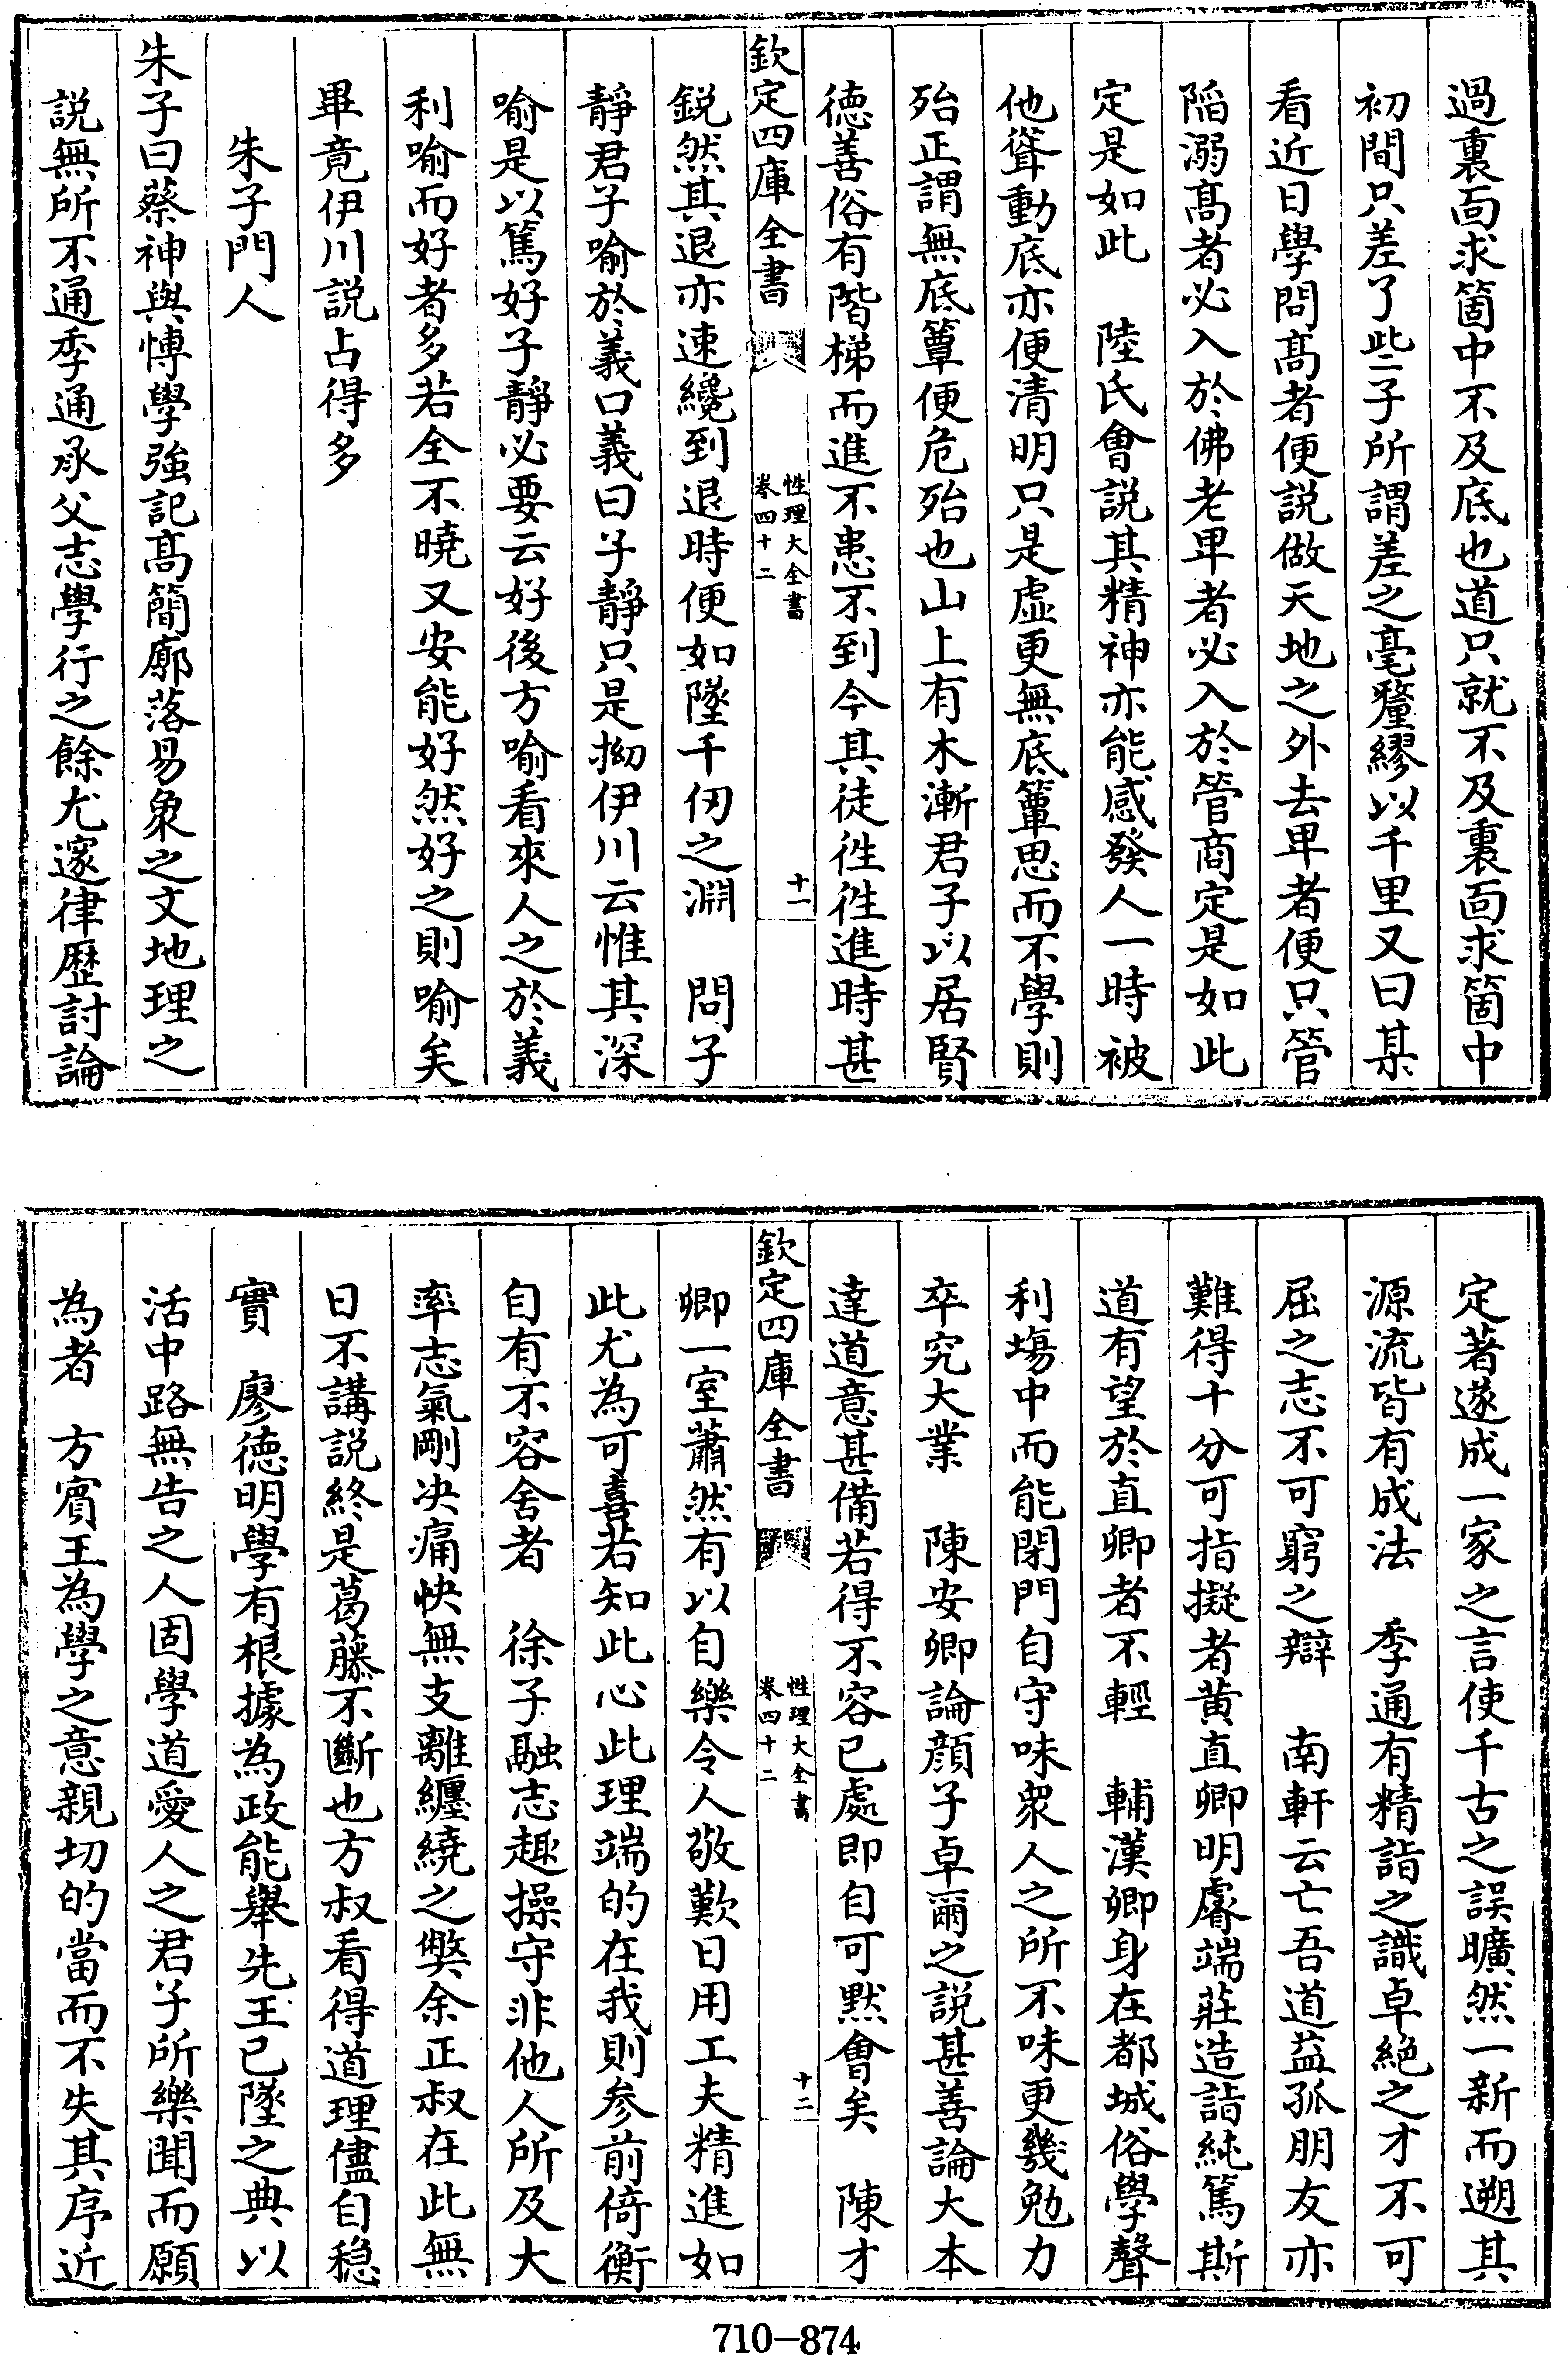 過裏面求箇中不及底也道只就不及裏面求箇中
初間只差了些子所謂差之毫釐繆以千里又曰某
看近日學問髙者便説做天地之外去卑者便只管
陷溺髙者必入於佛老卑者必入於管商定是如此
定是如此　陸氏會説其精神亦能感發人一時被
他聳動底亦便清明只是虚更無底簟思而不學則
殆正謂無底簟便危殆也山上有木漸君子以居賢
徳善俗有階梯而進不患不到今其徒徃徃進時甚
欽定四庫全書
性理大全書
卷四十二
十一
鋭然其退亦速纔到退時便如墜千仞之淵　問子
静君子喻於義口義曰子靜只是拗伊川云惟其深
喻是以篤好子靜必要云好後方喻看來人之於義
利喻而好者多若全不曉又安能好然好之則喻矣
畢竟伊川説占得多
朱子門人
朱子曰蔡神與愽學強記髙簡廓落易象之文地理之
説無所不通季通承父志學行之餘尤邃律歴討論
定著遂成一家之言使千古之誤曠然一新而遡其
源流皆有成法　季通有精詣之識卓絶之才不可
屈之志不可窮之辯　南軒云亡吾道益孤朋友亦
難得十分可指擬者黄直卿明睿端莊造詣純篤斯
道有望於直卿者不輕　輔漢卿身在都城俗學聲
利塲中而能閉門自守味衆人之所不味更幾勉力
卒究大業　陳安卿論顔子卓爾之説甚善論大本
達道意甚備若得不容已處即自可黙㑹矣　陳才
欽定四庫全書
性理大全書
卷四十二
十二
卿一室蕭然有以自樂令人敬歎日用工夫精進如
此尤為可喜若知此心此理端的在我則参前倚衡
自有不容舍者　徐子融志趣操守非他人所及大
率志氣剛决痛快無支離纒繞之獘余正叔在此無
日不講説終是葛藤不斷也方叔看得道理儘自穏
實　廖徳明學有根據為政能舉先王已墜之典以
活中路無告之人固學道愛人之君子所樂聞而願
為者　方賓王為學之意親切的當而不失其序近
710-874